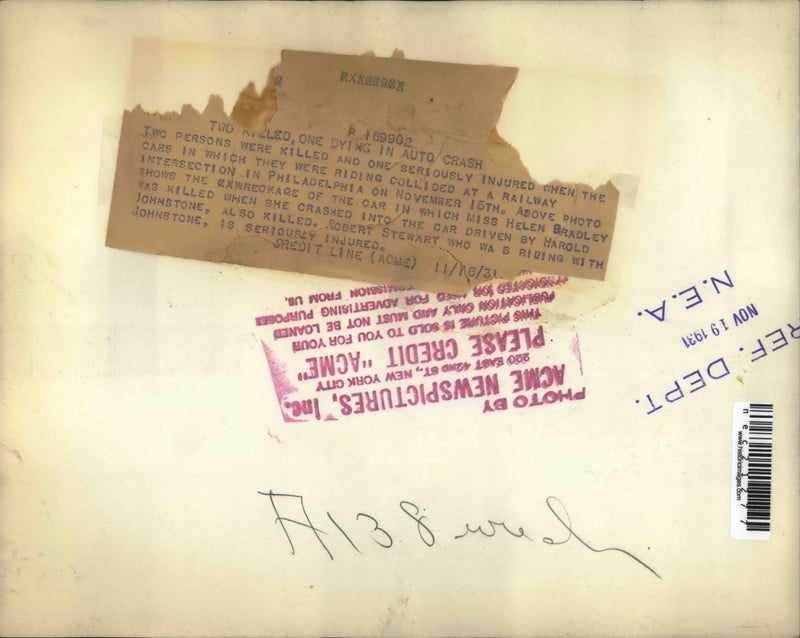 P 169902
TWO KILLED, ONE DYING IN AUTO CRASH
TWO PERSONS WERE KILLED AND ONE SERIOUSLY INJURED WHEN THE
CARS IN WHICH THEY WERE RIDING COLLIDED AT A RAILWAY
INTERSECTION IN PHILADELPHIA ON NOVEMBER 15TH. ABOVE PHOTO
SHOWS THE WRECKAGE OF THE CAR IN WHICH MISS HELEN BRADLEY
WAS KILLED WHEN SHE CRASHED INTO THE CAR DRIVEN BY HAROLD
JOHNSTONE, ALSO KILLED. ROBERT STEWART WHO WAS RIDING WITH
JOHNSTONE, IS SERIOUSLY INJURED.
CREDIT LINE (ACME) 11/16/31
PHOTO BY
ACME NEWSPICTURES, Inc.
220 EAST 42ND ST., NEW YORK CITY
PLEASE CREDIT "ACME"
THIS PICTURE IS SOLD TO YOU FOR YOUR
PUBLICATION ONLY AND MUST NOT BE LOANED
SYNDICATED OR USED FOR ADVERTISING PURPOSES
FROM US.
REF. DEPT.
NOV 19 1931
N.E.A.
www.historicimages.com
A138